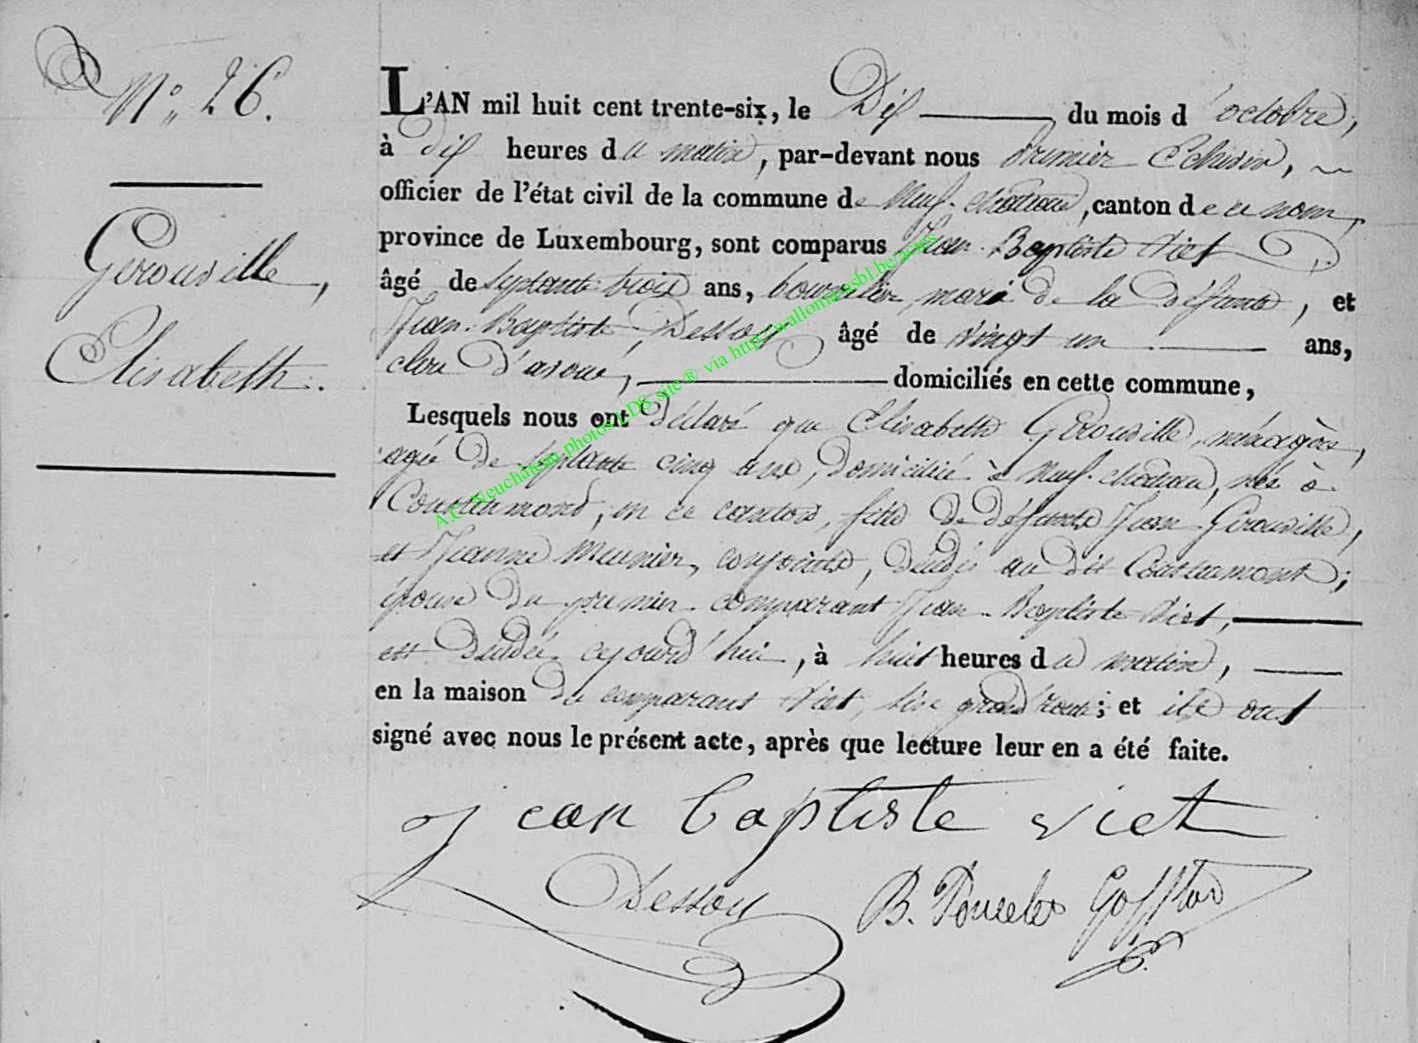 N° 26.
Gerouville,
Elisabeth.
L'AN mil huit cent trente-six, le Dix du mois d'octobre,
à dix heures du matin, par-devant nous premier Echevin,
officier de l'état civil de la commune de Neuf-chateau, canton de ce nom,
province de Luxembourg, sont comparus Jean-Baptiste Viet
âgé de septante trois ans, bourrelier, mari de la défunte, et
Jean-Baptiste Dessoy âgé de vingt un ans,
clerc d'avoué, domiciliés en cette commune,
Lesquels nous ont déclaré que Elisabeth Gerouville, ménagère,
agée de septante cinq ans, domiciliée à Neuf-chateau, née à
Coustumont, en ce canton, fille de défunts Jean Gerouville,
et Jeanne Meunier, conjoints, décédés au dit Coustumont;
épouse du premier comparant Jean-Baptiste Viet,
est décédée cejourd'hui, à huit heures du matin,
en la maison du comparant Viet, sise grand'route; et ils ont
signé avec nous le présent acte, après que lecture leur en a été faite.
jean baptiste viet
Dessoy B. Poncelet
A.C. Neuchâteau photos LDS site® via http://wallonia-asbl.be/actes